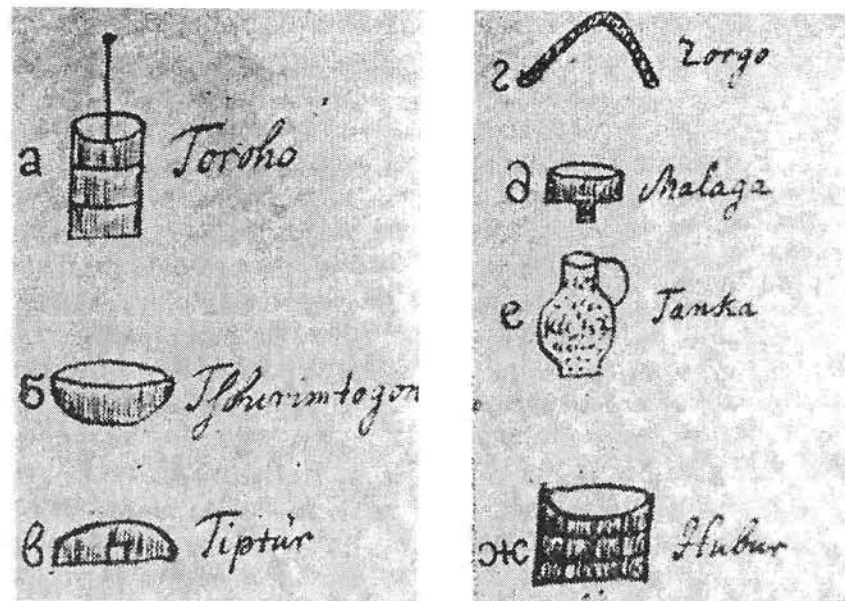 а Toroho
б Tschurimtogon
в Tiptür
г Zorgo
д Malaga
е Tanka
ж Hubur